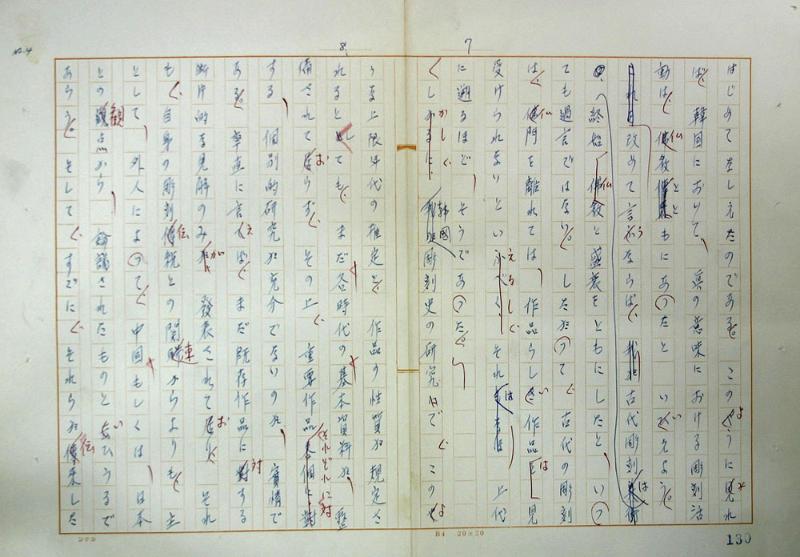 7
はじめてなしえたのである。このように見れ
ば、韓国において、真の意味における彫刻活
動は、仏教とともにあったと、いえよう。
改めて言うならば、古代彫刻は
終始、仏教と盛衰をともにしたと、いっ
ても過言ではない。したがって、古代の彫刻
は、仏門を離れては、作品らしい作品は見
受けられないといえるし、それは上代
に遡るほど、そうであった。
しかるに、韓國彫刻史の研究はで、このよ
8
うな上限年代の推定と、作品の性質が規定さ
れるとしても、まだ各時代の基本資料が整
備されておらず、その上、重要作品それぞれに対
する、個別的研究が充分でないのが、實情で
ある。率直に言えば、まだ既存作品に対する
断片的な見解のみが、発表されており、それ
も、自身の彫刻伝統との関連からよりも、主
として、外人によって、中国もしくは日本
との観点から、論議されたものといいうるで
あろう。そして、すでに、それらが伝来した
B4 20×20
130